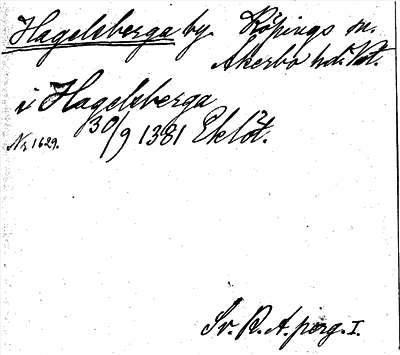 Hagelsberga by Köpings sn.
Åkerbo hd. Vstm.
i Hagelsberga
30/9 1381 Eklöt.
Nr 1629.
Sv. R. A. perg. I.